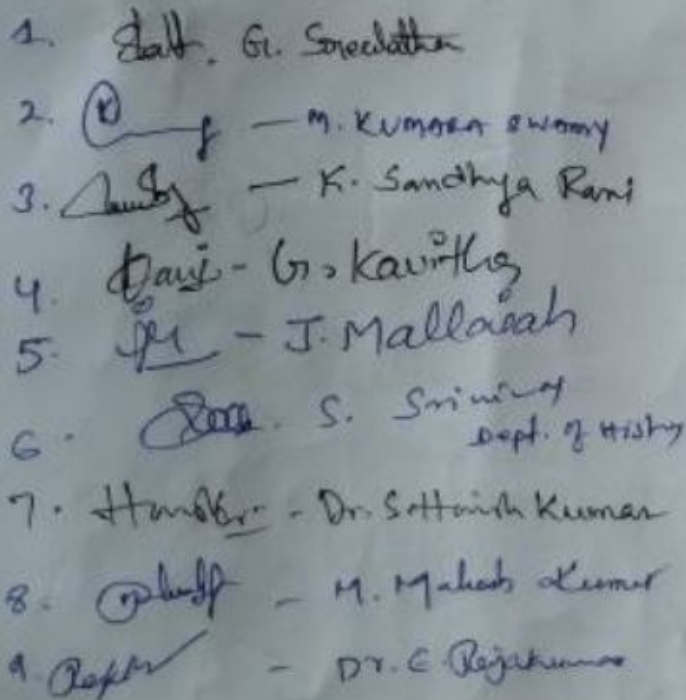 1. G. Sreelatha
2. - M. KUMARA SWAMY
3. - K. Sandhya Rani
4. - G. Kavitha
5. - J. Mallaiah
6. S. Srinivas
Dept. of History
7. - Dr. S. Harish Kumar
8. - M. Mahesh Kumar
9. - Dr. E Rajakumar